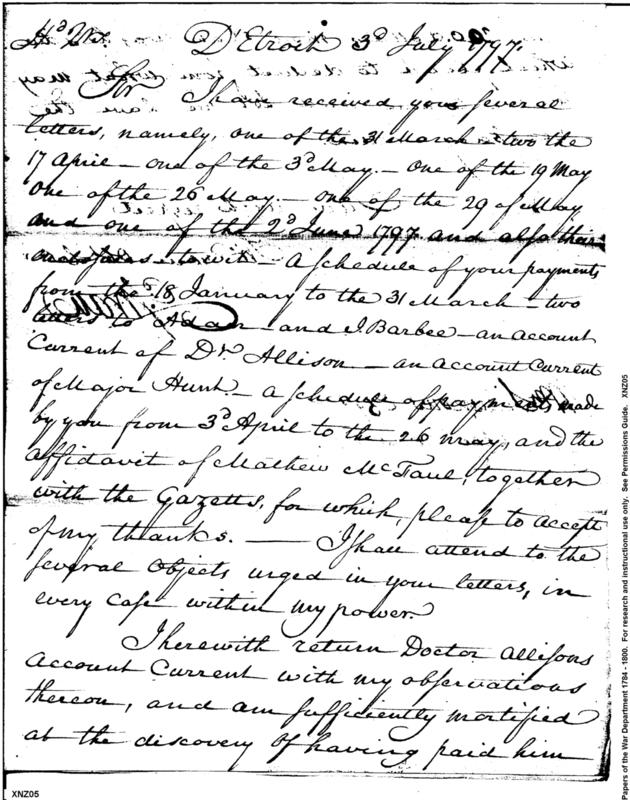 Hd Qrs. D'Etroit 3d July 1797.
Sir
I have received your several
letters, namely, one of the 31 March – two the
17 April – one of the 3d May – one of the 19 May
one of the 26 May – one of the 29 of May
and one of the 2d June 1797 and also their
to wit – a schedule of your payments
from the 18 January to the 31 March – two
letters to Adair – and J. Barbee – an account
Current of Dr Allison – an account Current
of Major Hunt – a schedule of payments made
by you from 3d April to the 26 may, and the
affidavit of Mathew McFaul, together
with the Gazetts, for which, please to accept
of my thanks. — I shall attend to the
several objects urged in your letters, in
every case within my power.
I herewith return Doctor Allisons
Account Current with my observations
thereon, and am sufficiently mortified
at the discovery of having paid him
XNZ05
Papers of the War Department 1784 - 1800. For research and instructional use only. See Permissions Guide. XNZ05